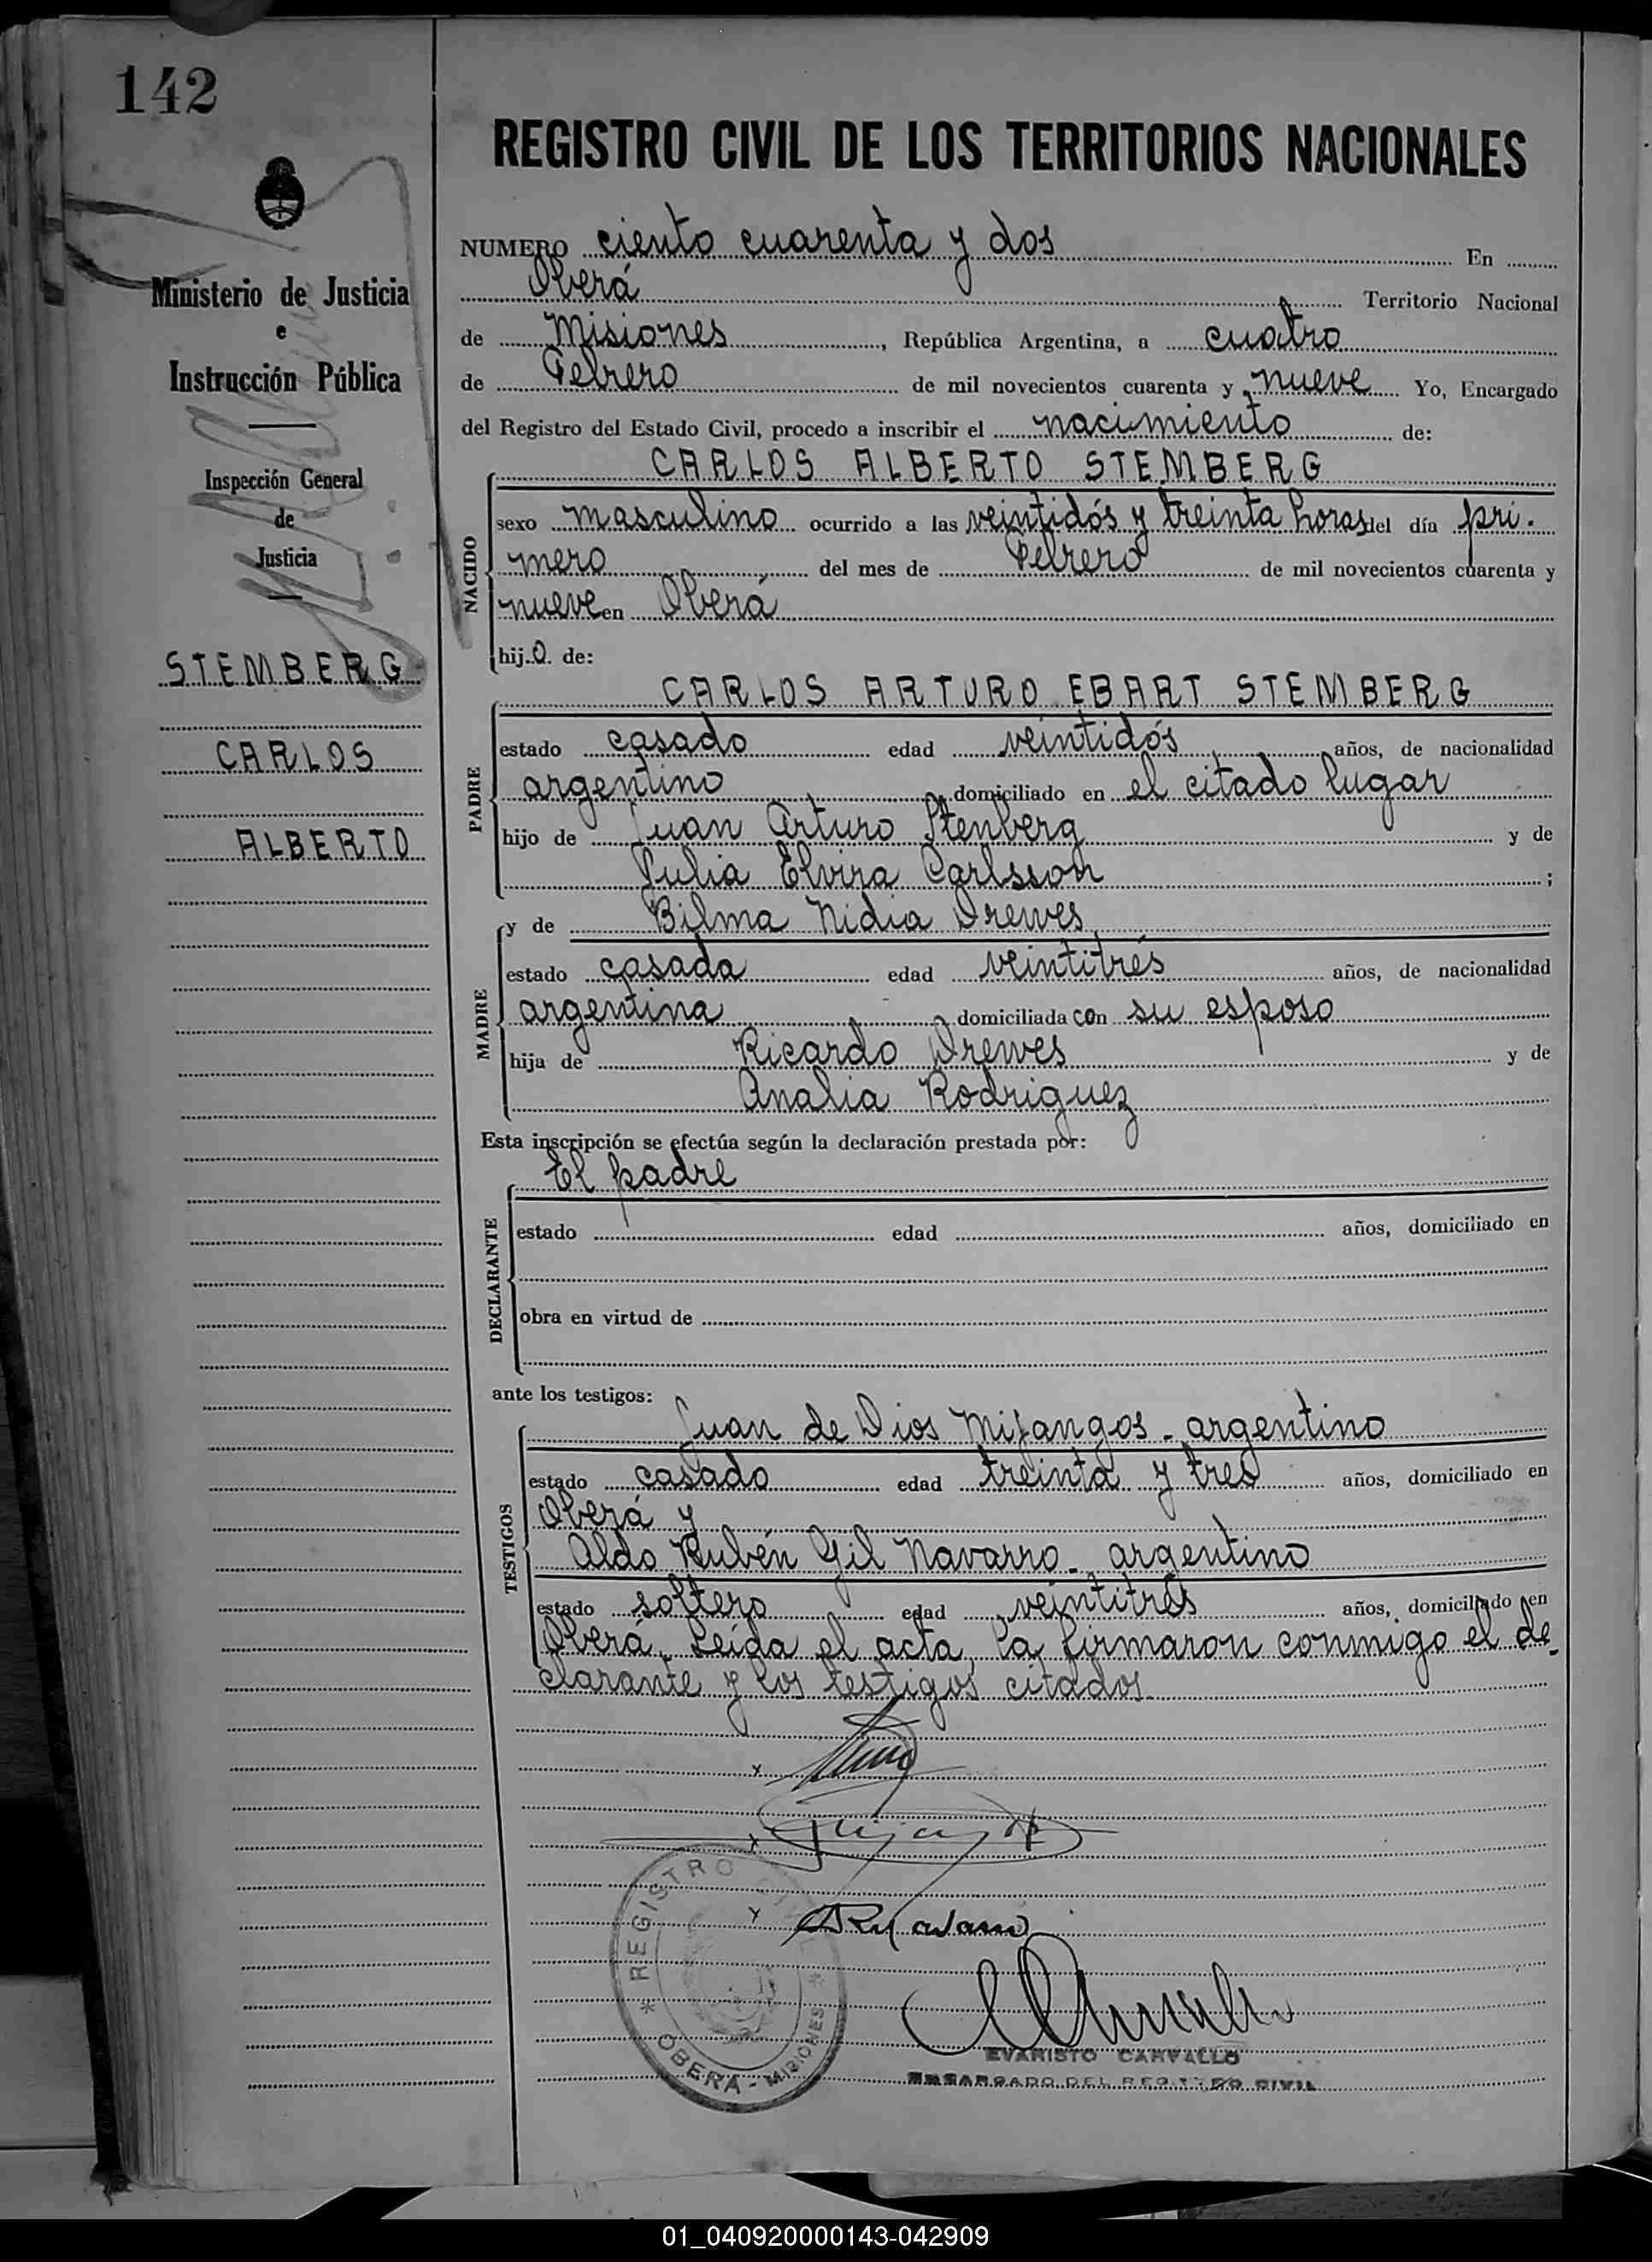 142
REGISTRO CIVIL DE LOS TERRITORIOS NACIONALES
Ministerio de Justicia
e
Instrucción Pública
Inspección General
de
Justicia
STEMBERG
CARLOS
ALBERTO
NUMERO ciento cuarenta y dos En
Oberá Territorio Nacional
de Misiones, República Argentina, a cuatro
de Febrero de mil novecientos cuarenta y nueve Yo, Encargado
del Registro del Estado Civil, procedo a inscribir el nacimiento de:
NACIDO
CARLOS ALBERTO STEMBERG
sexo masculino ocurrido a las veintidós y treinta horas del día pri-
mero del mes de Febrero de mil novecientos cuarenta y
nueve en Oberá
hijo de:
PADRE
CARLOS ARTURO EBART STEMBERG
estado casado edad veintidós años, de nacionalidad
argentino domiciliado en el citado lugar
hijo de Juan Arturo Stenberg y de
Julia Elvira Carlsson ;
MADRE
y de Bilma Nidia Drewes
estado casada edad veintitrés años, de nacionalidad
argentina domiciliada con su esposo
hija de Ricardo Drewes y de
Analia Rodriguez
Esta inscripción se efectúa según la declaración prestada por:
DECLARANTE
El padre
estado edad años, domiciliado en
obra en virtud de
ante los testigos:
TESTIGOS
Juan de Dios Mijangos - argentino
estado casado edad treinta y tres años, domiciliado en
Oberá y
Aldo Rubén Gil Navarro - argentino
estado soltero edad veintitrés años, domiciliado en
Oberá. Leída el acta, la firmaron conmigo el de-
clarante y los testigos citados.
REGISTRO CIVIL
* OBERÁ - MISIONES *
EVARISTO CARVALLO
ENCARGADO DEL REGISTRO CIVIL
01_040920000143-042909